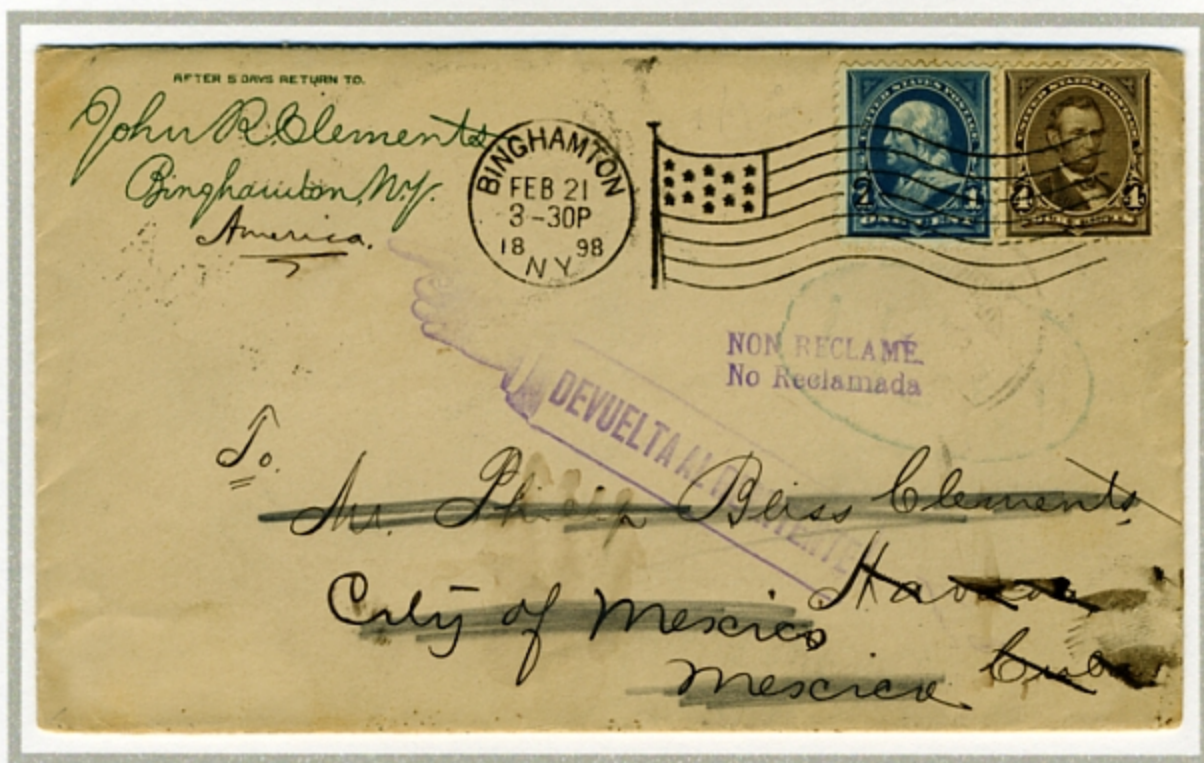 AFTER 5 DAYS RETURN TO.
John R. Clements
Binghamton, N.Y.
America.
BINGHAMTON
FEB 21
3-30P
18 98
N.Y.
UNITED STATES POSTAGE
UNITED STATES POSTAGE
4 4
NON RECLAMÉ.
No Reclamada
DEVUELTA AL REMITENTE
To.
Mr. Philip Bliss Clements,
Havana
City of Mexico
Cuba
Mexico